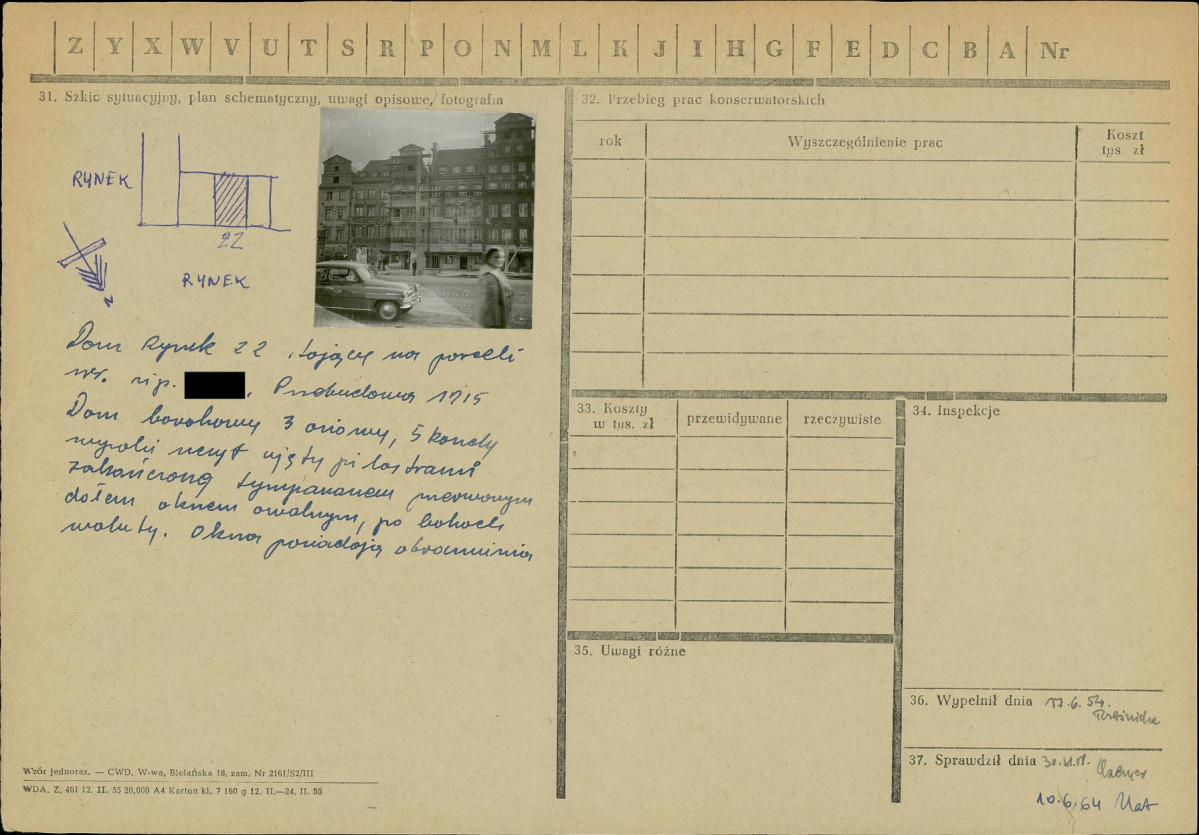 Z Y X W V U T S R P O N M L K J I H G F E D C B A Nr
31. Szkic sytuacyjny, plan schematyczny, uwagi opisowe, fotografia
RYNEK
22
RYNEK
N
Dom Rynek 22 stojący na parceli
Przebudowa 1715
Dom barokowy 3 osiowy, 5 kondy
szczyt ujęty pilastrami
zakończony tympanonem przerwanym
dołem oknem owalnym, po bokach
woluty. Okna posiadają obramienia
Wzór jednoraz. — CWD. W-wa, Bielańska 18, zam. Nr 2161/S2/III
WDA. Z. 461 12. II. 55 20,000 A4 Karton kl. 7 160 g 12. II.—24. II. 55
32. Przebieg prac konserwatorskich
rok
Wyszczególnienie prac
Koszt
tys. zł
33. Koszty
w tys. zł
przewidywane
rzeczywiste
34. Inspekcje
35. Uwagi różne
36. Wypełnił dnia 17.6.54.
37. Sprawdził dnia
10.6.64